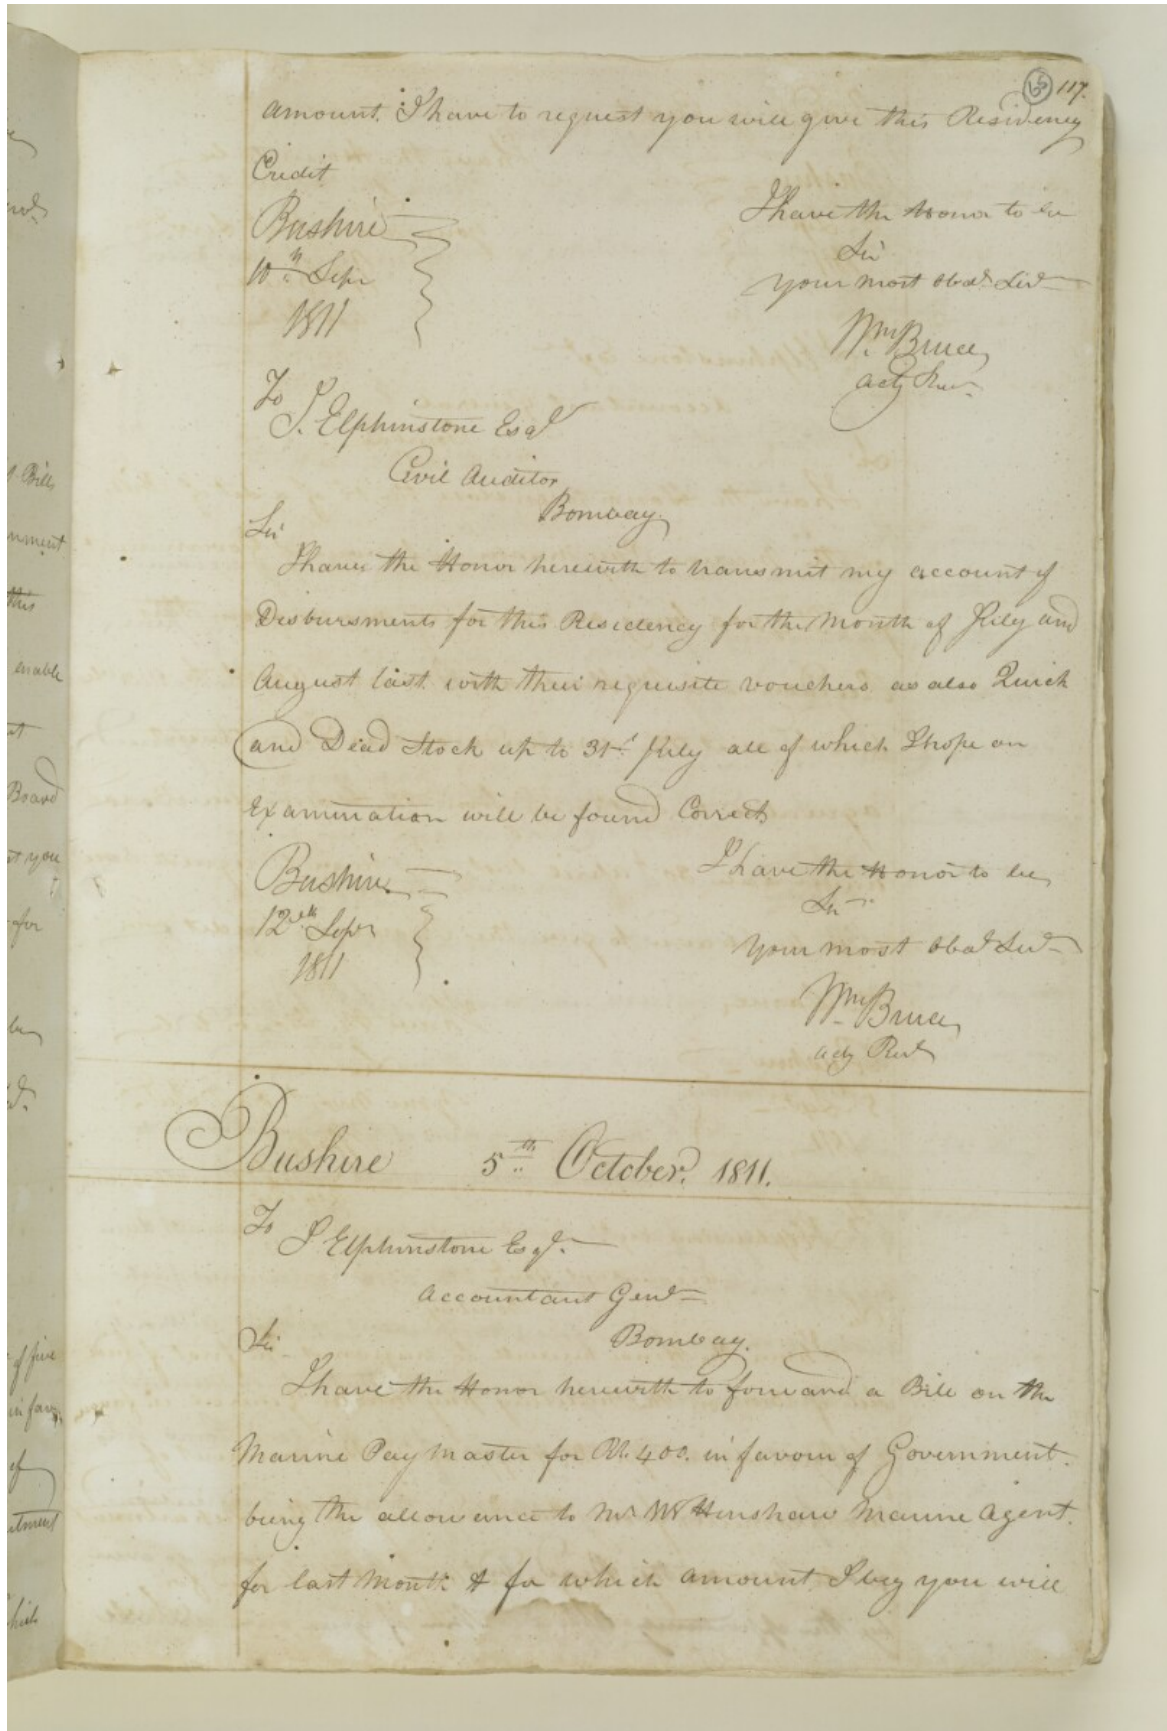 65 117.
amount. I have to request you will give this Residency
Credit
Bushire
10th Sepr
1811
I have the Honor to be
Sir
Your most Obedt Servt
Wm Bruce
actg Resdt
To
J. Elphinstone Esqr
Civil Auditor
Bombay.
Sir
I have the Honor herewith to transmit my account of
Disbursments for this Residency for the Month of July and
August last with their requisite vouchers as also Quick
and Dead Stock up to 31st July all of which I hope on
Examination will be found Correct
Bushire
12th Sepr
1811
I have the Honor to be
Sir
Your most Obedt Servt
Wm Bruce
actg Resdt
Bushire 5th October. 1811.
To
J. Elphinstone Esqr.
Accountant Genl
Bombay.
Sir
I have the Honor herewith to forward a Bill on the
Marine Pay Master for Rs. 400. in favour of Government.
being the allowance to Mr Wm Henshaw Marine Agent.
for last Month & for which amount, I beg you will
Bills
this
enable
Board
you
for
of five
of